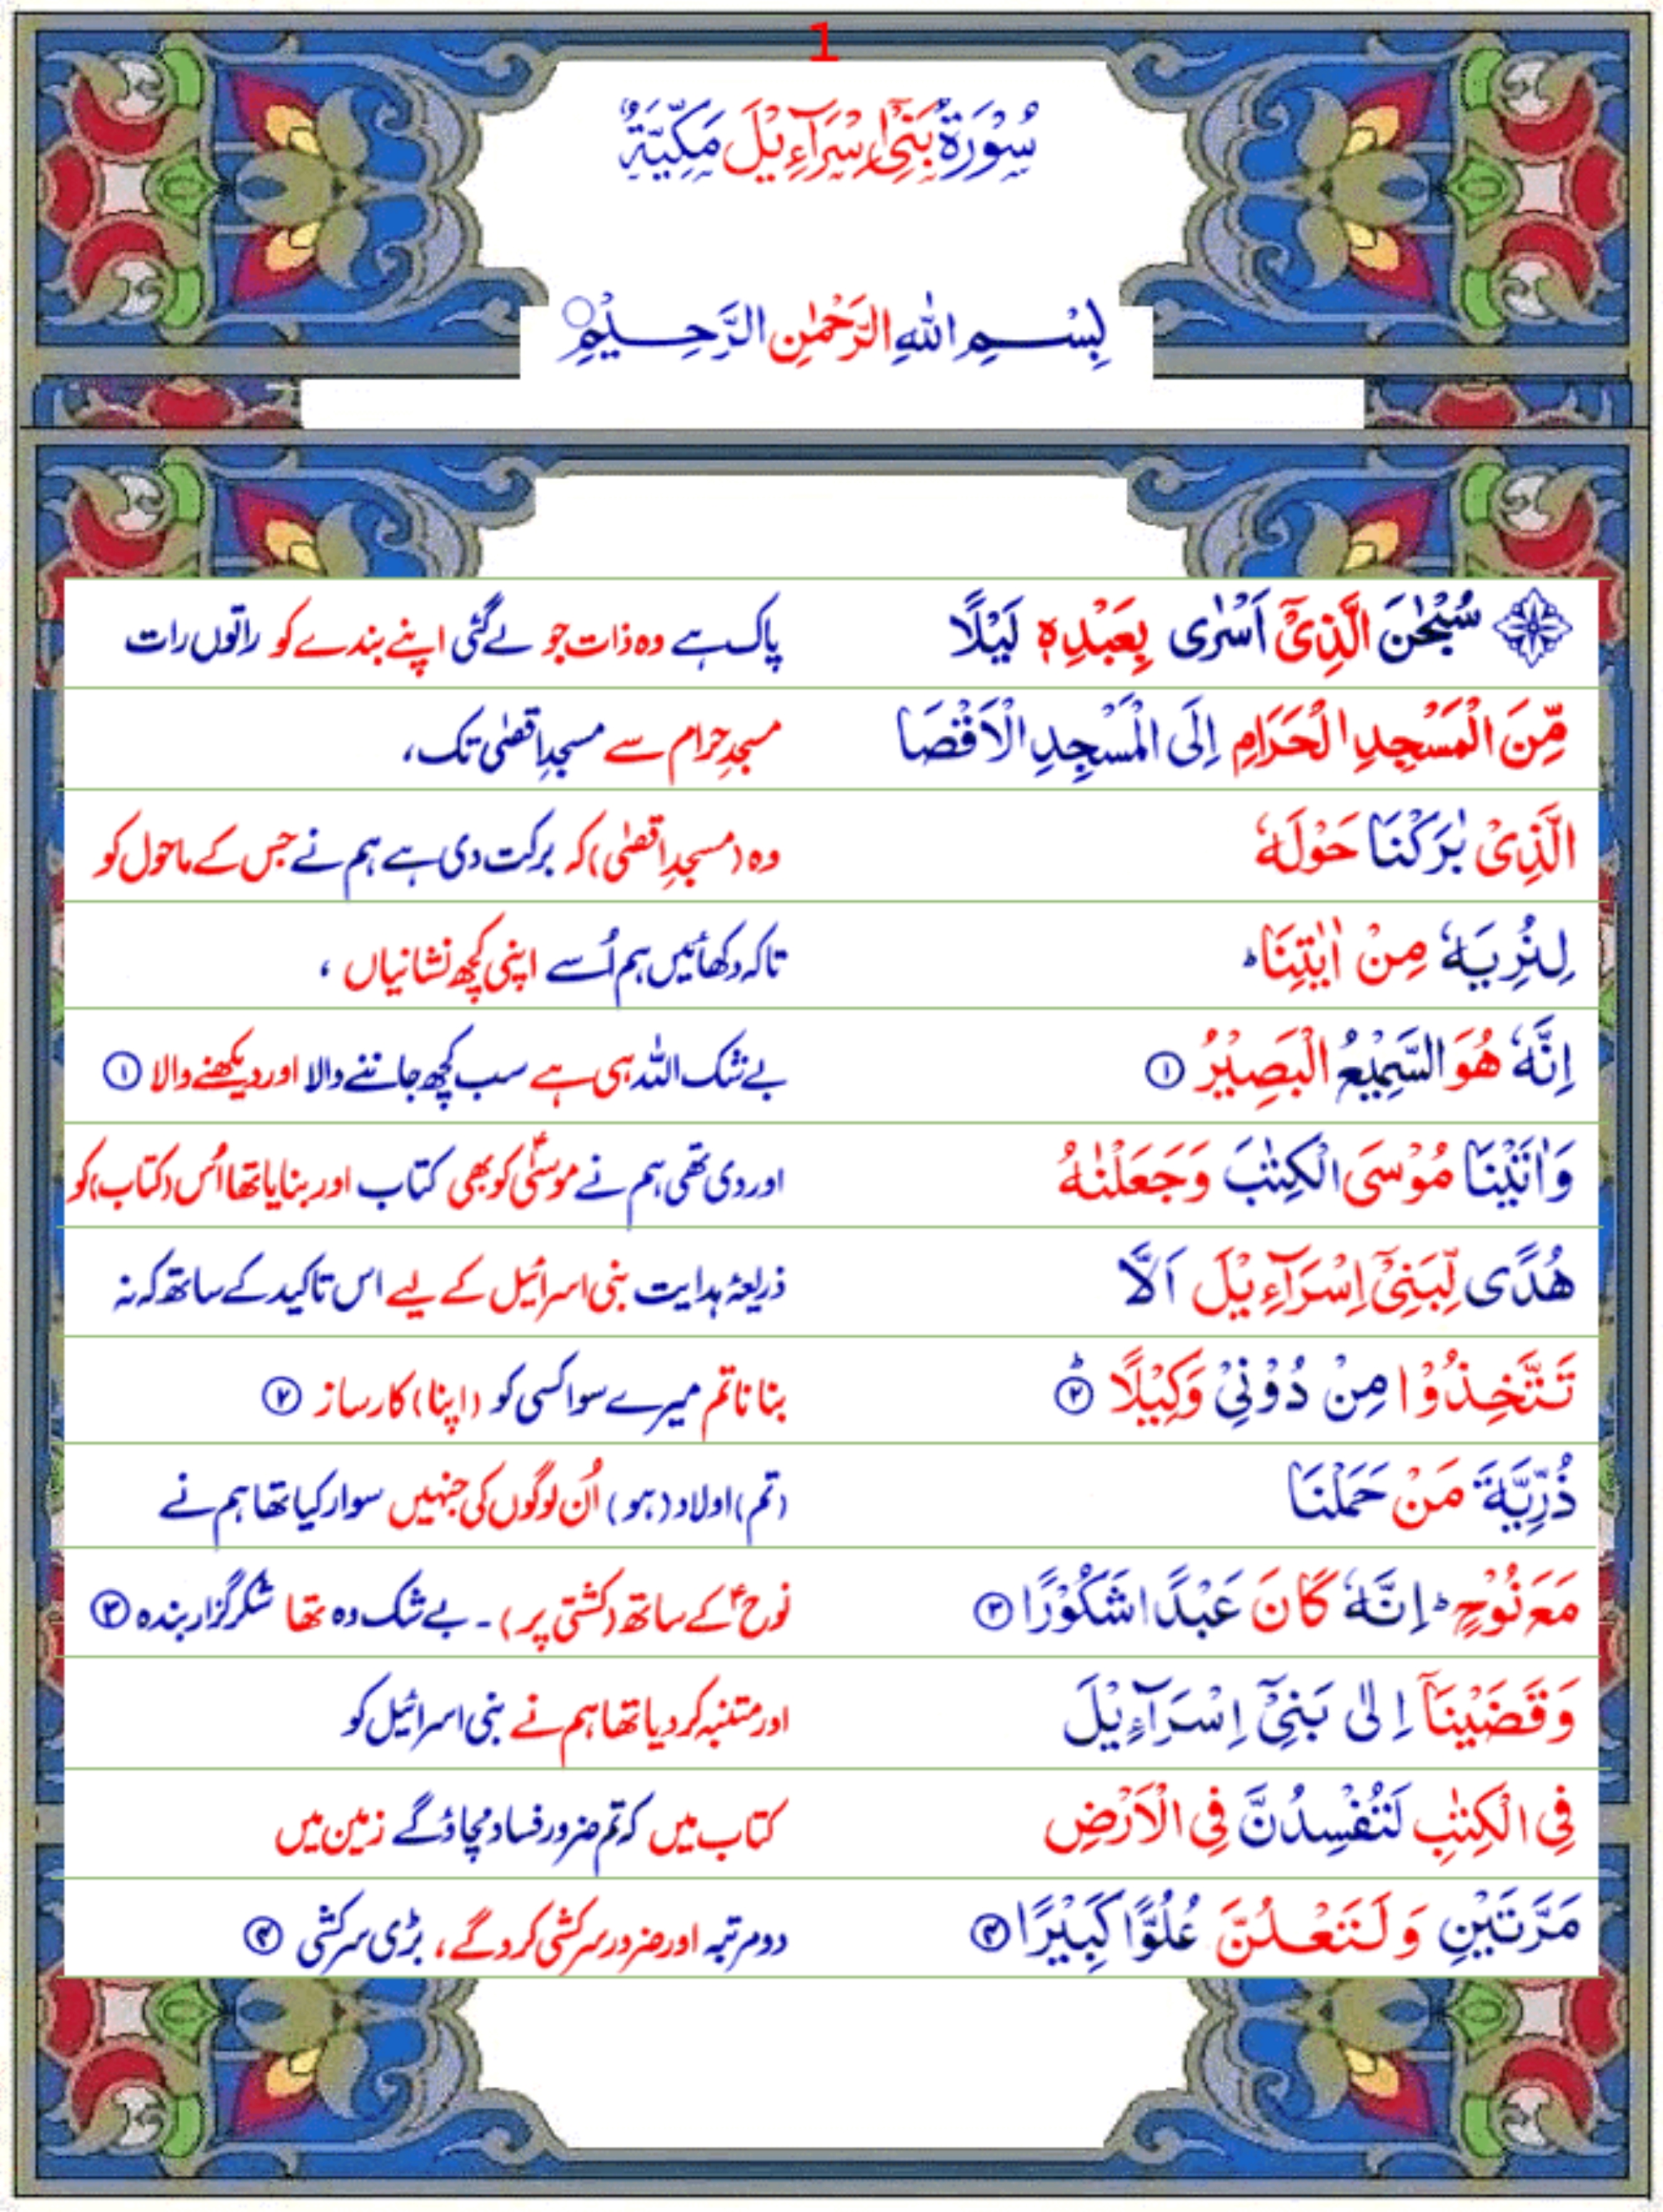 1
سُوْرَةُ بَنِیْۤ اِسْرَآءِیْلَ مَكِّیَّةٌ
بِسْمِ اللّٰهِ الرَّحْمٰنِ الرَّحِیْمِ
سُبْحٰنَ الَّذِیْۤ اَسْرٰی بِعَبْدِهٖ لَیْلًا پاک ہے وہ ذات جو لے گئی اپنے بندے کو راتوں رات
مِّنَ الْمَسْجِدِ الْحَرَامِ اِلَی الْمَسْجِدِ الْاَقْصَا مسجدِ حرام سے مسجدِ اقصٰی تک،
الَّذِیْ بٰرَكْنَا حَوْلَهٗ وہ (مسجدِ اقصٰی) کہ برکت دی ہے ہم نے جس کے ماحول کو
لِنُرِیَهٗ مِنْ اٰیٰتِنَا ؕ تاکہ دکھائیں ہم اُسے اپنی کچھ نشانیاں ،
اِنَّهٗ هُوَ السَّمِیْعُ الْبَصِیْرُ ۱ بے شک اللہ ہی ہے سب کچھ جاننے والا اور دیکھنے والا ۱
وَاٰتَیْنَا مُوْسَی الْكِتٰبَ وَجَعَلْنٰهُ اور دی تھی ہم نے موسٰیؑ کو بھی کتاب اور بنایا تھا اُس (کتاب) کو
هُدًی لِّبَنِیْۤ اِسْرَآءِیْلَ اَلَّا ذریعۂ ہدایت بنی اسرائیل کے لیے اس تاکید کے ساتھ کہ نہ
تَتَّخِذُوْا مِنْ دُوْنِیْ وَكِیْلًا ؕ۲ بنانا تم میرے سوا کسی کو (اپنا) کارساز ۲
ذُرِّیَّةَ مَنْ حَمَلْنَا (تم) اولاد (ہو) اُن لوگوں کی جنہیں سوار کیا تھا ہم نے
مَعَ نُوْحٍ ؕ اِنَّهٗ كَانَ عَبْدًا شَكُوْرًا ۳ نوحؑ کے ساتھ (کشتی پر)۔ بے شک وہ تھا شکرگزار بندہ ۳
وَقَضَیْنَاۤ اِلٰی بَنِیْۤ اِسْرَآءِیْلَ اور متنبہ کر دیا تھا ہم نے بنی اسرائیل کو
فِی الْكِتٰبِ لَتُفْسِدُنَّ فِی الْاَرْضِ کتاب میں کہ تم ضرور فساد مچاؤ گے زمین میں
مَرَّتَیْنِ وَلَتَعْلُنَّ عُلُوًّا كَبِیْرًا ۴ دو مرتبہ اور ضرور سرکشی کرو گے، بڑی سرکشی ۴